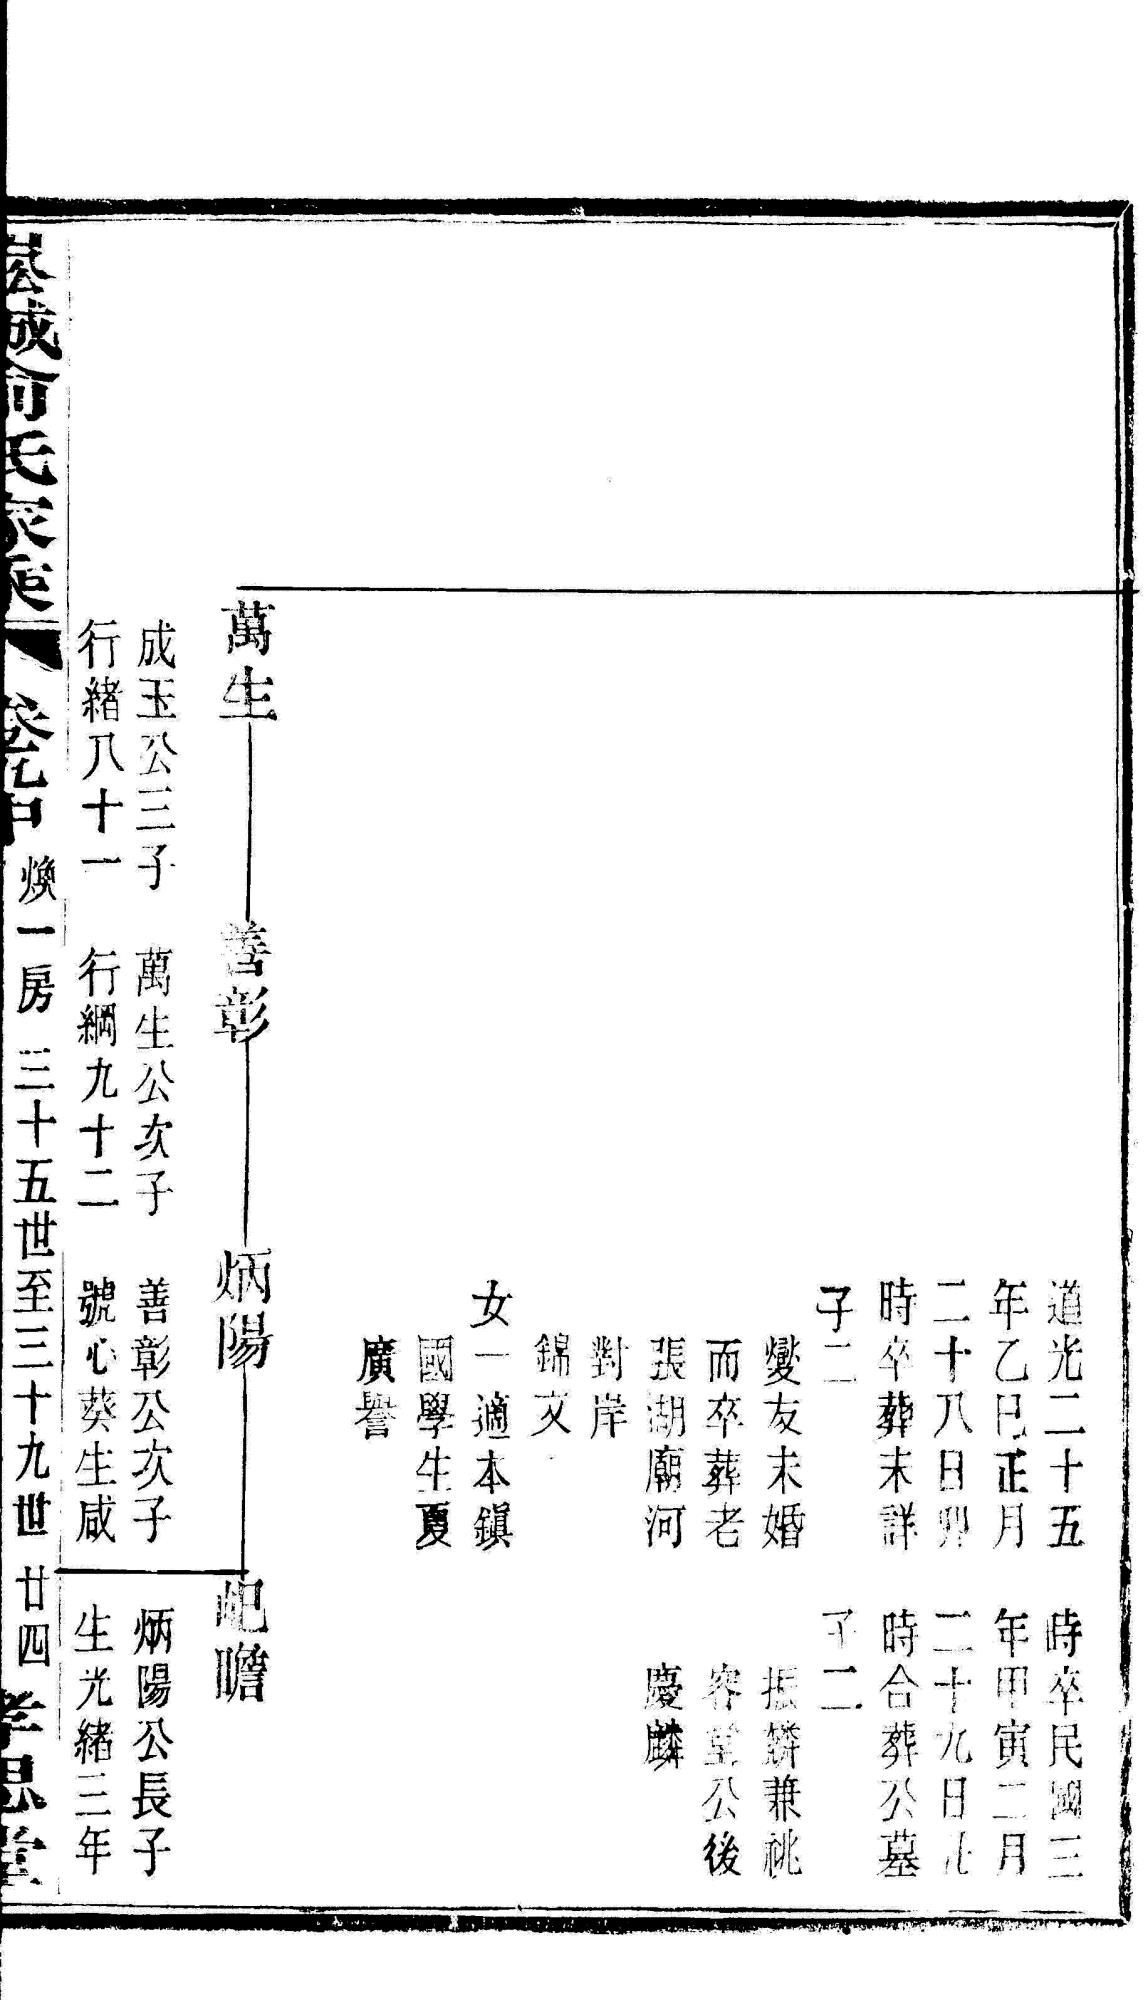 道光二十五
年乙巳正月
二十八日卯
時卒葬未詳
子二
燮友未婚
而卒葬老
張湖廟河
對岸
錦文
女一適本鎮
國學生夏
廣譽
時卒民國三
年甲寅二月
二十九日
時合葬公墓
子二
振麟兼祧
容堂公後
慶麟
萬生
成玉公三子
行緒八十一
善彰
萬生公次子
行綱九十二
炳陽
善彰公次子
號心葵生咸
屺瞻
炳陽公長子
生光緒三年
城俞氏家乘
卷九中
煥一房 三十五世至三十九世 廿四
孝思堂